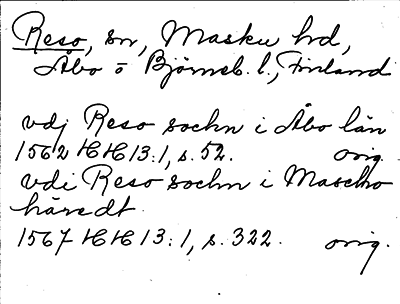 Reso, sn, Masku hrd,
Åbo o Björneb. l., Finland
vdj Reso sochn i Åbo län
1562 HH 13:1, s. 52. orig.
vdi Reso sochn i Mascho
häredt
1567 HH 13:1, s. 322. orig.